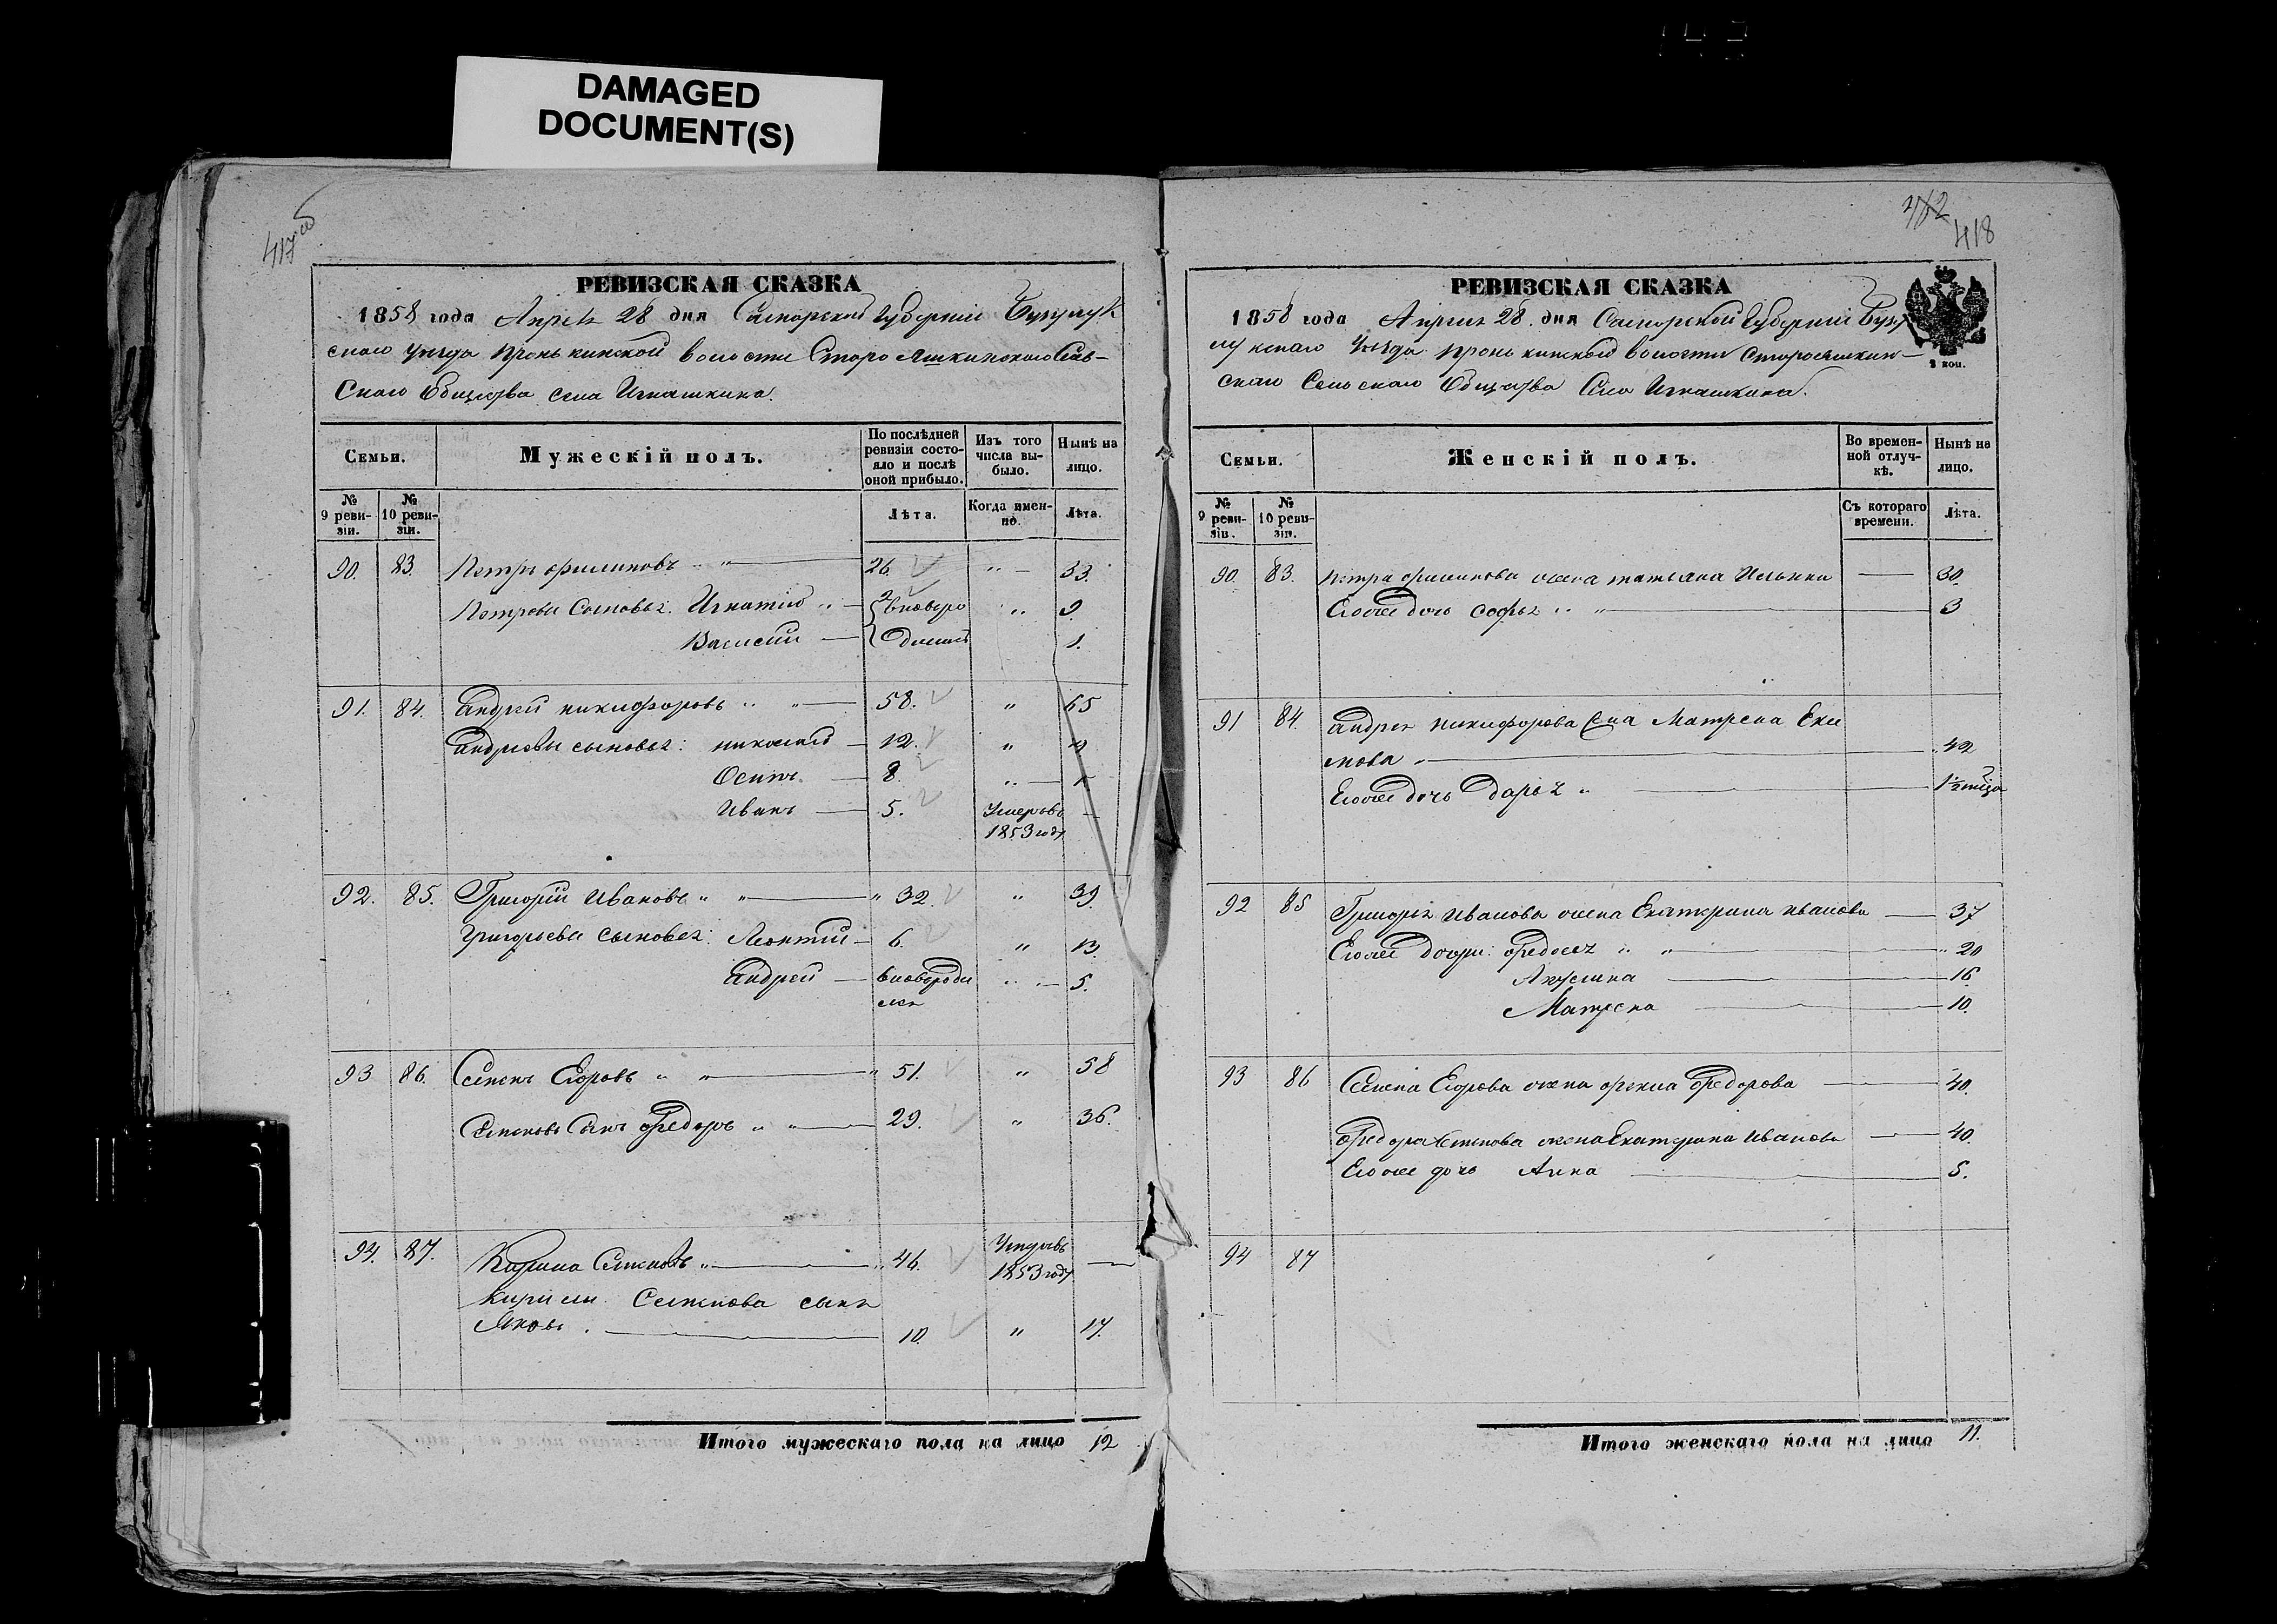 DAMAGED
DOCUMENT(S)
417об
РЕВИЗСКАЯ СКАЗКА
1858 года Апреля 28 дня Самарской Губерніи Бузулук
скаго уезда Пронькинской волости Старо Яшкинскаго Сель-
Скаго Общества села Игнашкина.
Семьи.
Мужескій полъ.
По послѣдней ревизіи состояло и послѣ оной прибыло.
Изъ того числа выбыло.
Нынѣ на лицо.
№ 9 ревизіи.
№ 10 ревизіи.
Лѣта.
Когда именно.
Лѣта.
90. 83. Петръ Филиповъ „ „ 26. „ 33.
Петровы Сыновья: Игнатій „ 2 вновь ро „ 9
Василий дились 1.
91. 84. Андрей никифоровъ „ „ 58. „ 65
Андреевы сыновья: николай 12. „
Осипъ 8. „
Иванъ 5. Умеръ въ —
1853 году
92. 85. Григорій Ивановъ „ „ „ 32. „ 39.
Григорьевы сыновья: Леонтій 6. „ 13.
Андрей вновь роди „ 5.
лся
93 86. Семенъ Егоровъ „ „ „ 51. „ 58
Семеновъ Сынъ Федоръ „ „ 29. „ 36.
94. 87. Кирила Семеновъ „ „ 46. Умеръ въ —
1853 году
Кирилы Семенова сынъ
Яковъ. 10. „ 17.
Итого мужескаго пола на лицо 12
182
418
РЕВИЗСКАЯ СКАЗКА
1858 года Апреля 28. дня Самарской Губерніи Бузу
лукскаго Уезда Пронькинской волости Старояшкин-
скаго Сельскаго Общества Села Игнашкина.
2 коп.
Семьи.
Женскій полъ.
Во временной отлучкѣ.
Нынѣ на лицо.
№ 9 ревизіи.
№ 10 ревизіи.
Съ котораго времени.
Лѣта.
90. 83. Петра Филипова жена татьяна Ильина — 30.
Его же дочь софья „ „ 3
91 84. Андрея никифорова жена Матрена Еки
мова „ „ 42
Его же дочь Дарья „ 1½ месяца
92 85 Григорья Иванова жена Екатерина иванова — 37
Его же дочери: Федосья „ „ „ 20
Акулина 16.
Матрена 10.
93 86 Семена Егорова жена Фекла Федорова — 40.
Федора Семенова жена Екатерина Иванова — 40.
Его же дочь Анна 5.
94 87
Итого женскаго пола на лицо 11.